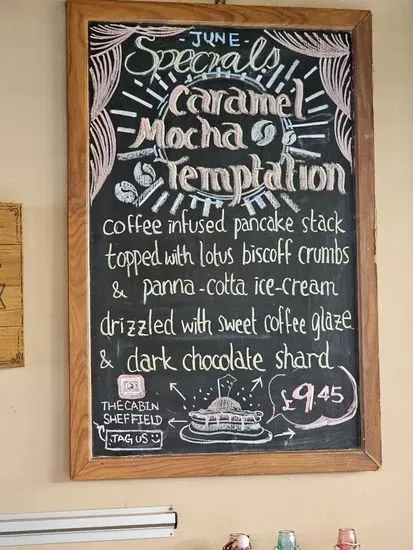 - JUNE -
Specials
Caramel
Mocha
Temptation
coffee infused pancake stack
topped with lotus biscoff crumbs
& panna-cotta ice-cream
drizzled with sweet coffee glaze
& dark chocolate shard
£9.45
THECABIN
SHEFFIELD
TAG US